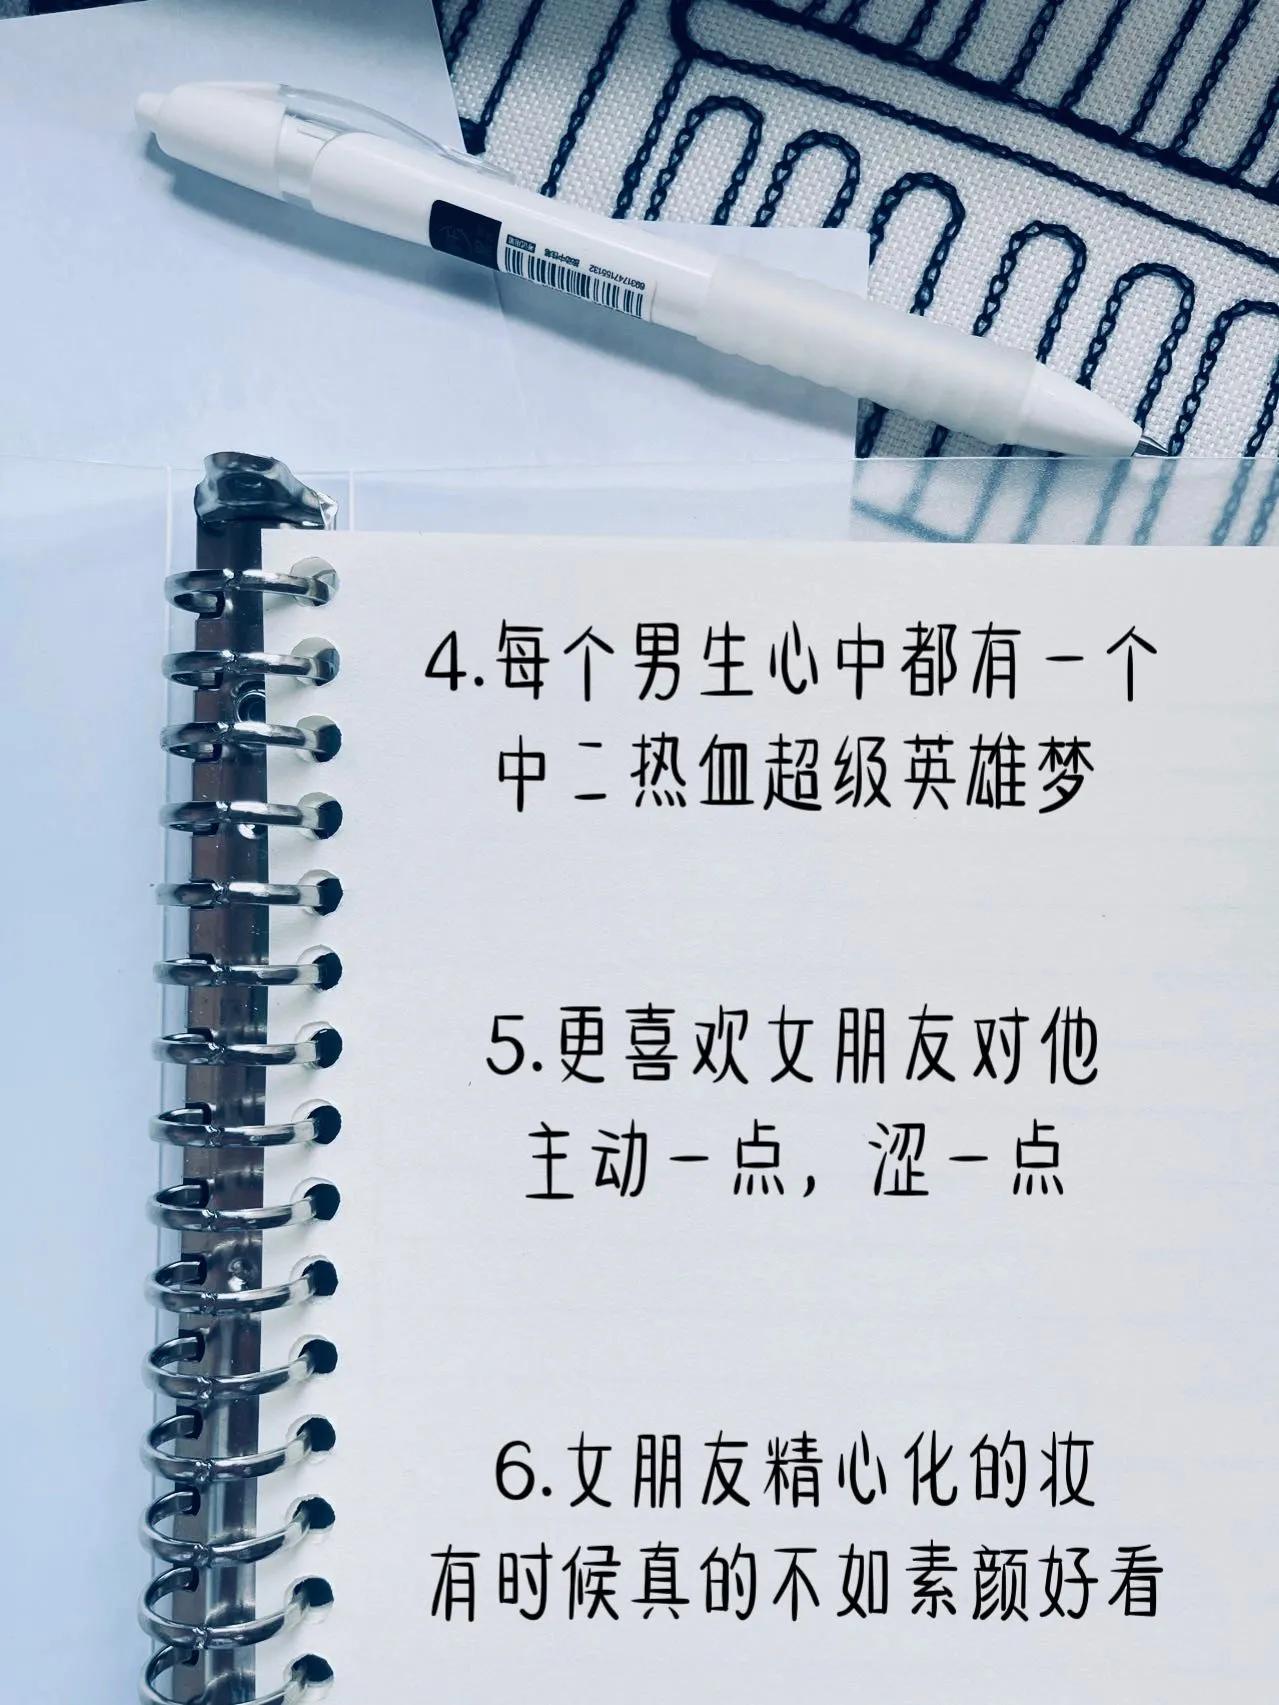 6931747155132
4.每个男生心中都有一个
中二热血超级英雄梦
5.更喜欢女朋友对他
主动一点，涩一点
6.女朋友精心化的妆
有时候真的不如素颜好看